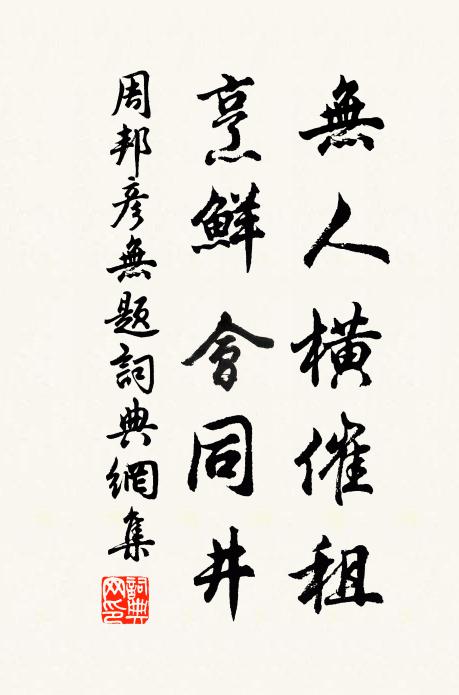 無人橫催租
烹鮮會同井
周邦彥無題詞典網集
詞典
网印